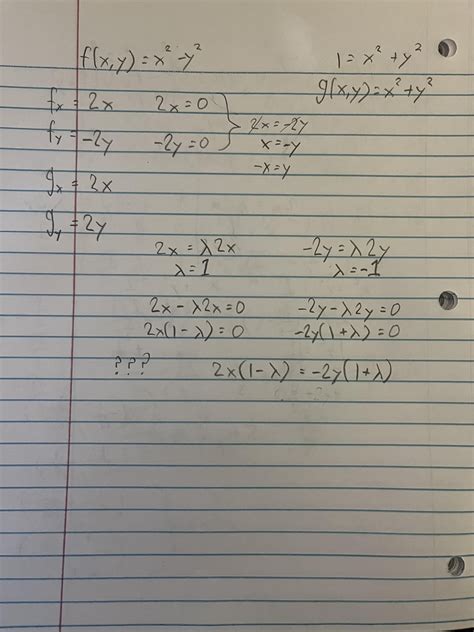 f(x,y) = x² - y²
1 = x² + y²
g(x,y) = x² + y²
f_x = 2x 2x = 0
f_y = -2y -2y = 0
2x = -2y
x = -y
-x = y
g_x = 2x
g_y = 2y
2x = λ2x -2y = λ2y
λ = 1 λ = -1
2x - λ2x = 0 -2y - λ2y = 0
2x(1 - λ) = 0 -2y(1 + λ) = 0
??? 2x(1 - λ) = -2y(1 + λ)